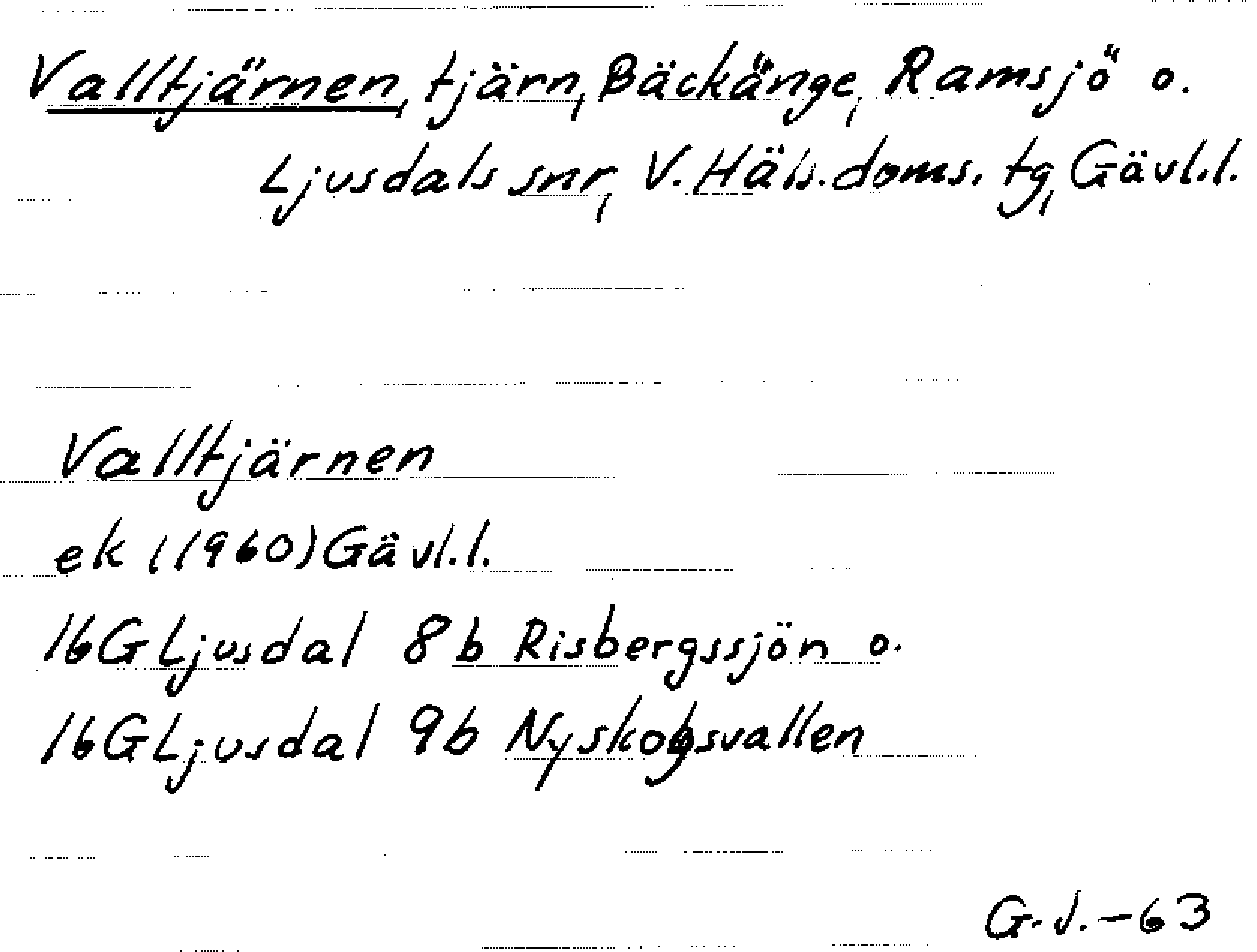 Valltjärnen, tjärn, Bäckänge, Ramsjö o.
Ljusdals snr, V. Häls. doms. tg, Gävl.l.
Valltjärnen
ek (1960) Gävl.l.
16G Ljusdal 8b Risbergssjön o.
16G Ljusdal 9b Nyskogsvallen
G.J.-63